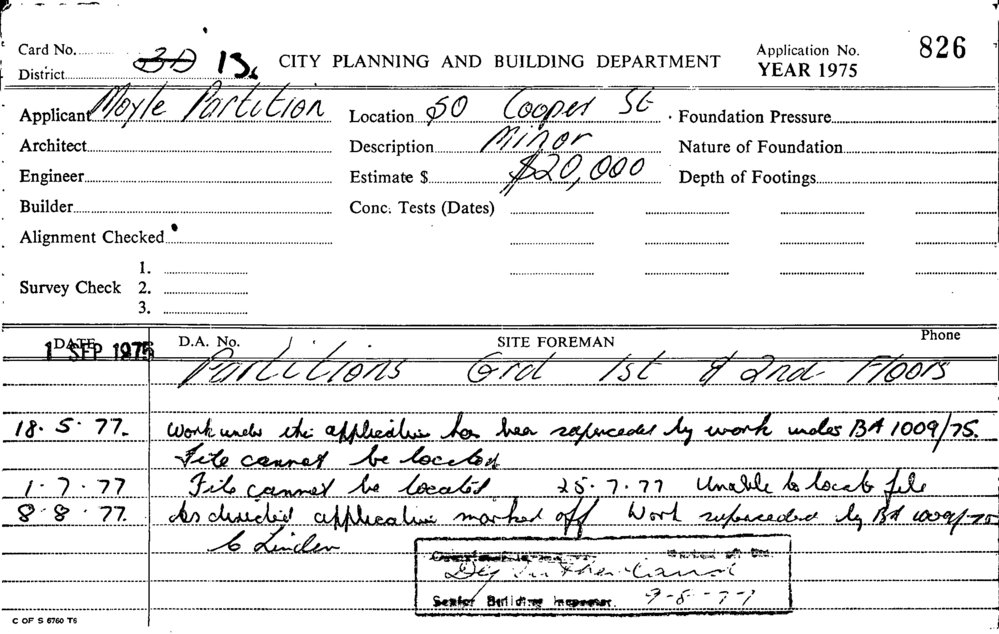 Card No. 3D 13. CITY PLANNING AND BUILDING DEPARTMENT Application No. 826
District YEAR 1975
Applicant Moyle Partition Location 50 Cooper St Foundation Pressure
Architect Description Minor Nature of Foundation
Engineer Estimate $ $20,000 Depth of Footings
Builder Conc. Tests (Dates)
Alignment Checked
1.
Survey Check 2.
3.
DATE D.A. No. SITE FOREMAN Phone
1 SEP 1975
Partitions Grd 1st & 2nd Floors
18. 5. 77. Work under this application has been superceded by work under BA 1009/75.
File cannot be located
1. 7. 77 File cannot be located 25. 7. 77 Unable to locate file
8. 8. 77. As directed application marked off Work superceded by BA 1009/75
Linden
Marked off the
Senior Building Inspector. 9-8-77
C OF S 6760 T6